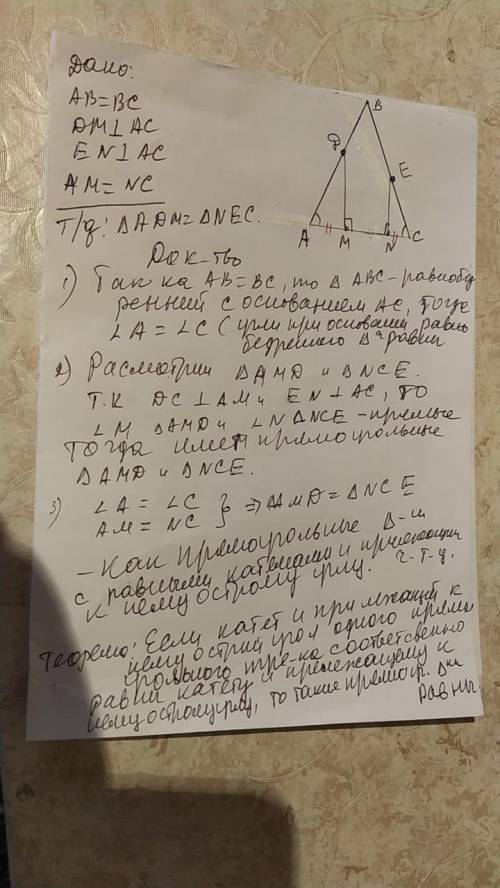 Дано:
AB=BC
DM⊥AC
EN⊥AC
AM=NC
Т/д: ΔADM=ΔNEC.
B
D
E
A
M
N
C
Док-тво
1) Так ка AB=BC, то Δ ABC-равнобед
ренней с основанием AC, тогда
∠A=∠C (углы при основании равно
бедренного Δ-а равны
2) Расмотрим ΔAMD и ΔNCE.
Т.К DC⊥AM и EN⊥AC, то
∠M ΔAMD и ∠N ΔNCE-прямые
тогда имеем прямоугольные
ΔAMD и ΔNCE.
3) ∠A=∠C
AM=NC } => ΔAMD=ΔNCE
-Как прямоугольные Δ-и
с равными катетами и прилежащим
к нему острому углу. ч.т.д.
Теорема: Если катет и прилежащий к
нему острый угол одного прямо
угольного тре-ка соответсвенно
равны катету и прилежащему к
нему острому углу, то такие прямоуг. Δки
равны.